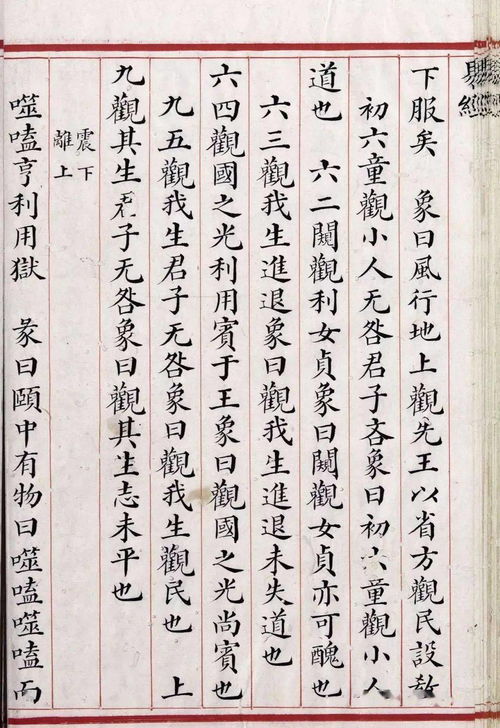 易經
下服矣　象曰風行地上觀先王以省方觀民設敎
初六童觀小人无咎君子吝象曰初六童觀小人
道也　六二闚觀利女貞象曰闚觀女貞亦可醜也
六三觀我生進退象曰觀我生進退未失道也
六四觀國之光利用賓于王象曰觀國之光尚賓也
九五觀我生君子无咎象曰觀我生觀民也　上
九觀其生君子无咎象曰觀其生志未平也
震下
離上
噬嗑亨利用獄　彖曰頤中有物曰噬嗑噬嗑而